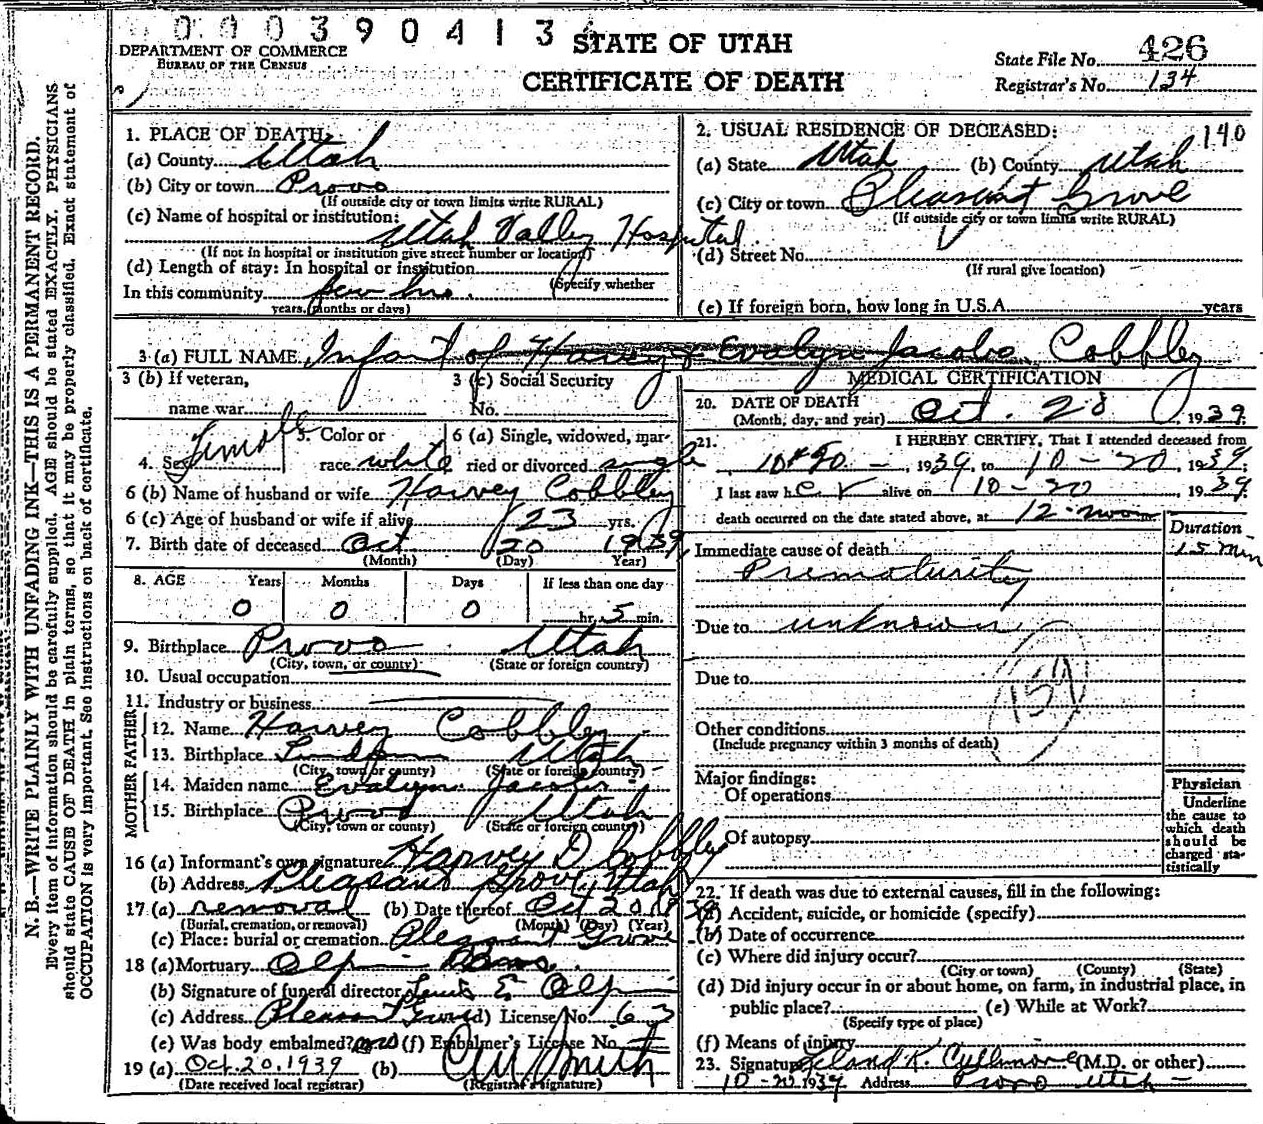 0 0 0 3 9 0 4 1 3 4
DEPARTMENT OF COMMERCE
BUREAU OF THE CENSUS
STATE OF UTAH
CERTIFICATE OF DEATH
State File No. 426
Registrar's No. 134
N. B.—WRITE PLAINLY WITH UNFADING INK—THIS IS A PERMANENT RECORD.
Every item of information should be carefully supplied. AGE should be stated EXACTLY. PHYSICIANS
should state CAUSE OF DEATH in plain terms, so that it may be properly classified. Exact statement of
OCCUPATION is very important. See instructions on back of certificate.
1. PLACE OF DEATH:
(a) County Utah
(b) City or town Provo
(If outside city or town limits write RURAL)
(c) Name of hospital or institution:
Utah Valley Hospital
(If not in hospital or institution give street number or location)
(d) Length of stay: In hospital or institution
(Specify whether
In this community few hrs.
years, months or days)
2. USUAL RESIDENCE OF DECEASED: 140
(a) State Utah (b) County Utah
(c) City or town Pleasant Grove
(If outside city or town limits write RURAL)
(d) Street No.
(If rural give location)
(e) If foreign born, how long in U.S.A. years
3 (a) FULL NAME Infant of Harvey & Evalyn Jacobs Cobbley
3 (b) If veteran,
name war
3 (c) Social Security
No.
4. Sex Female
5. Color or
race white
6 (a) Single, widowed, mar-
ried or divorced single
6 (b) Name of husband or wife Harvey Cobbley
6 (c) Age of husband or wife if alive 23 yrs.
7. Birth date of deceased Oct 20 1939
(Month) (Day) (Year)
8. AGE Years Months Days If less than one day
0 0 0 hr. 5 min.
9. Birthplace Provo Utah
(City, town, or county) (State or foreign country)
10. Usual occupation
11. Industry or business
FATHER
12. Name Harvey Cobbley
13. Birthplace Lindon Utah
(City, town or county) (State or foreign country)
MOTHER
14. Maiden name Evalyn
15. Birthplace Provo Utah
(City, town or county) (State or foreign country)
16 (a) Informant's own signature Harvey D Cobbley
(b) Address Pleasant Grove, Utah
17 (a) removal (b) Date thereof Oct 20 1939
(Burial, cremation, or removal) (Month) (Day) (Year)
(c) Place: burial or cremation Pleasant Grove
18 (a) Mortuary Olpin
(b) Signature of funeral director Lewis E Olpin
(c) Address Pleasant Grove (d) License No. 63
(e) Was body embalmed? no (f) Embalmer's License No.
19 (a) Oct. 20. 1939 (b) Smith
(Date received local registrar) (Registrar's signature)
MEDICAL CERTIFICATION
20. DATE OF DEATH Oct. 20 1939
(Month, day, and year)
21. I HEREBY CERTIFY, That I attended deceased from
10-20-, 1939, to 10-20, 1939;
I last saw her alive on 10-20 1939
death occurred on the date stated above, at 12-noon m.
Duration
Immediate cause of death 15 min
Prematurity
Due to unknown
Due to
159
Other conditions
(Include pregnancy within 3 months of death)
Major findings:
Of operations
Of autopsy
Physician
Underline
the cause to
which death
should be
charged sta-
tistically
22. If death was due to external causes, fill in the following:
(a) Accident, suicide, or homicide (specify)
(b) Date of occurrence
(c) Where did injury occur?
(City or town) (County) (State)
(d) Did injury occur in or about home, on farm, in industrial place, in
public place? (e) While at Work?
(Specify type of place)
(f) Means of injury
23. Signature Leland K. Cullimore (M.D. or other)
1939 Address Provo Utah